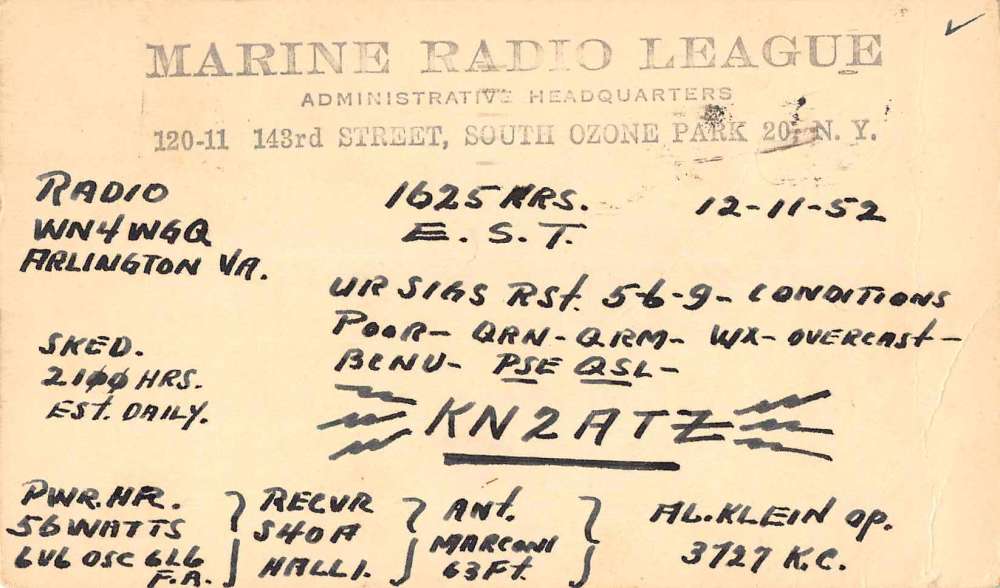 MARINE RADIO LEAGUE
ADMINISTRATIVE HEADQUARTERS
120-11 143rd STREET, SOUTH OZONE PARK 20, N. Y.
RADIO
WN4WGQ
ARLINGTON VA.
1625 HRS.
E. S. T.
12-11-52
UR SIGS RSt. 5-6-9- CONDITIONS
POOR- QRN-QRM- WX-OVERCASt-
BCNU- PSE QSL-
SKED.
21ØØ HRS.
ESt. DAILY.
KN2ATZ
PWR. HR.
56 WATTS
6V6 OSC 6L6
F.A.
RECVR
S40A
HALLI.
ANt.
MARCONI
63Ft.
AL.KLEIN OP.
3727 K.C.